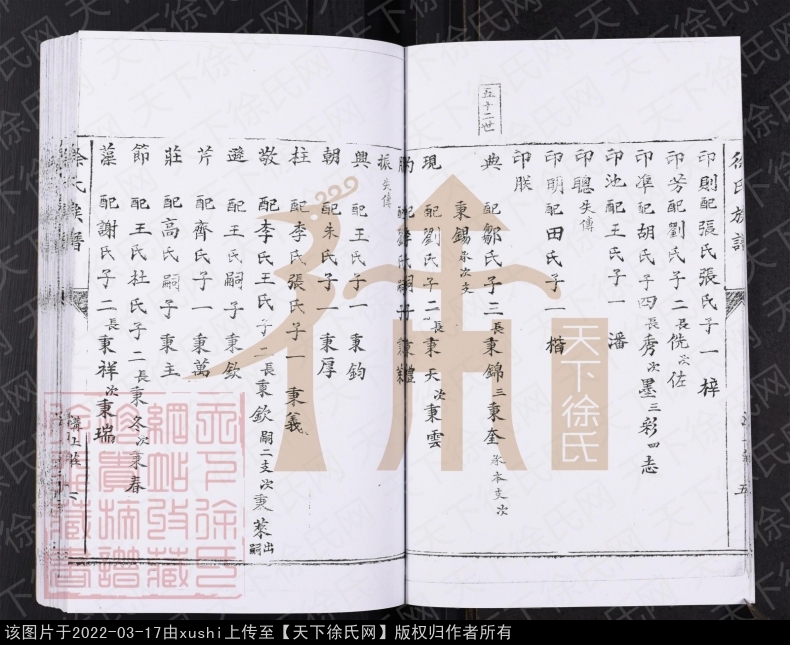 徐氏族譜
印則配張氏張氏子一梓
印芳配劉氏子二長侊次佐
印準配胡氏子四長秀次墨三彩四志
印池配王氏子一潘
印聰失傳
印明配田氏子一楷
印朕
五十二世
典配鄒氏子三長秉錦三秉奎承本支次
秉錫承次支
現配劉氏子二長秉天次秉雲
振失傳
興配王氏子一秉鈞
朝配朱氏子一秉厚
柱配李氏張氏子一秉義
敬配李氏王氏子二長秉欽嗣二支次秉萊出嗣
遜配王氏嗣子一秉欽
芹配齊氏子一秉萬
莊配高氏嗣子一秉主
節配王氏杜氏子二長秉冬次秉春
藻配謝氏子二長秉祥次秉瑞
徐氏族譜
天下徐氏
天下徐氏网
该图片于2022-03-17由xushi上传至【天下徐氏网】版权归作者所有